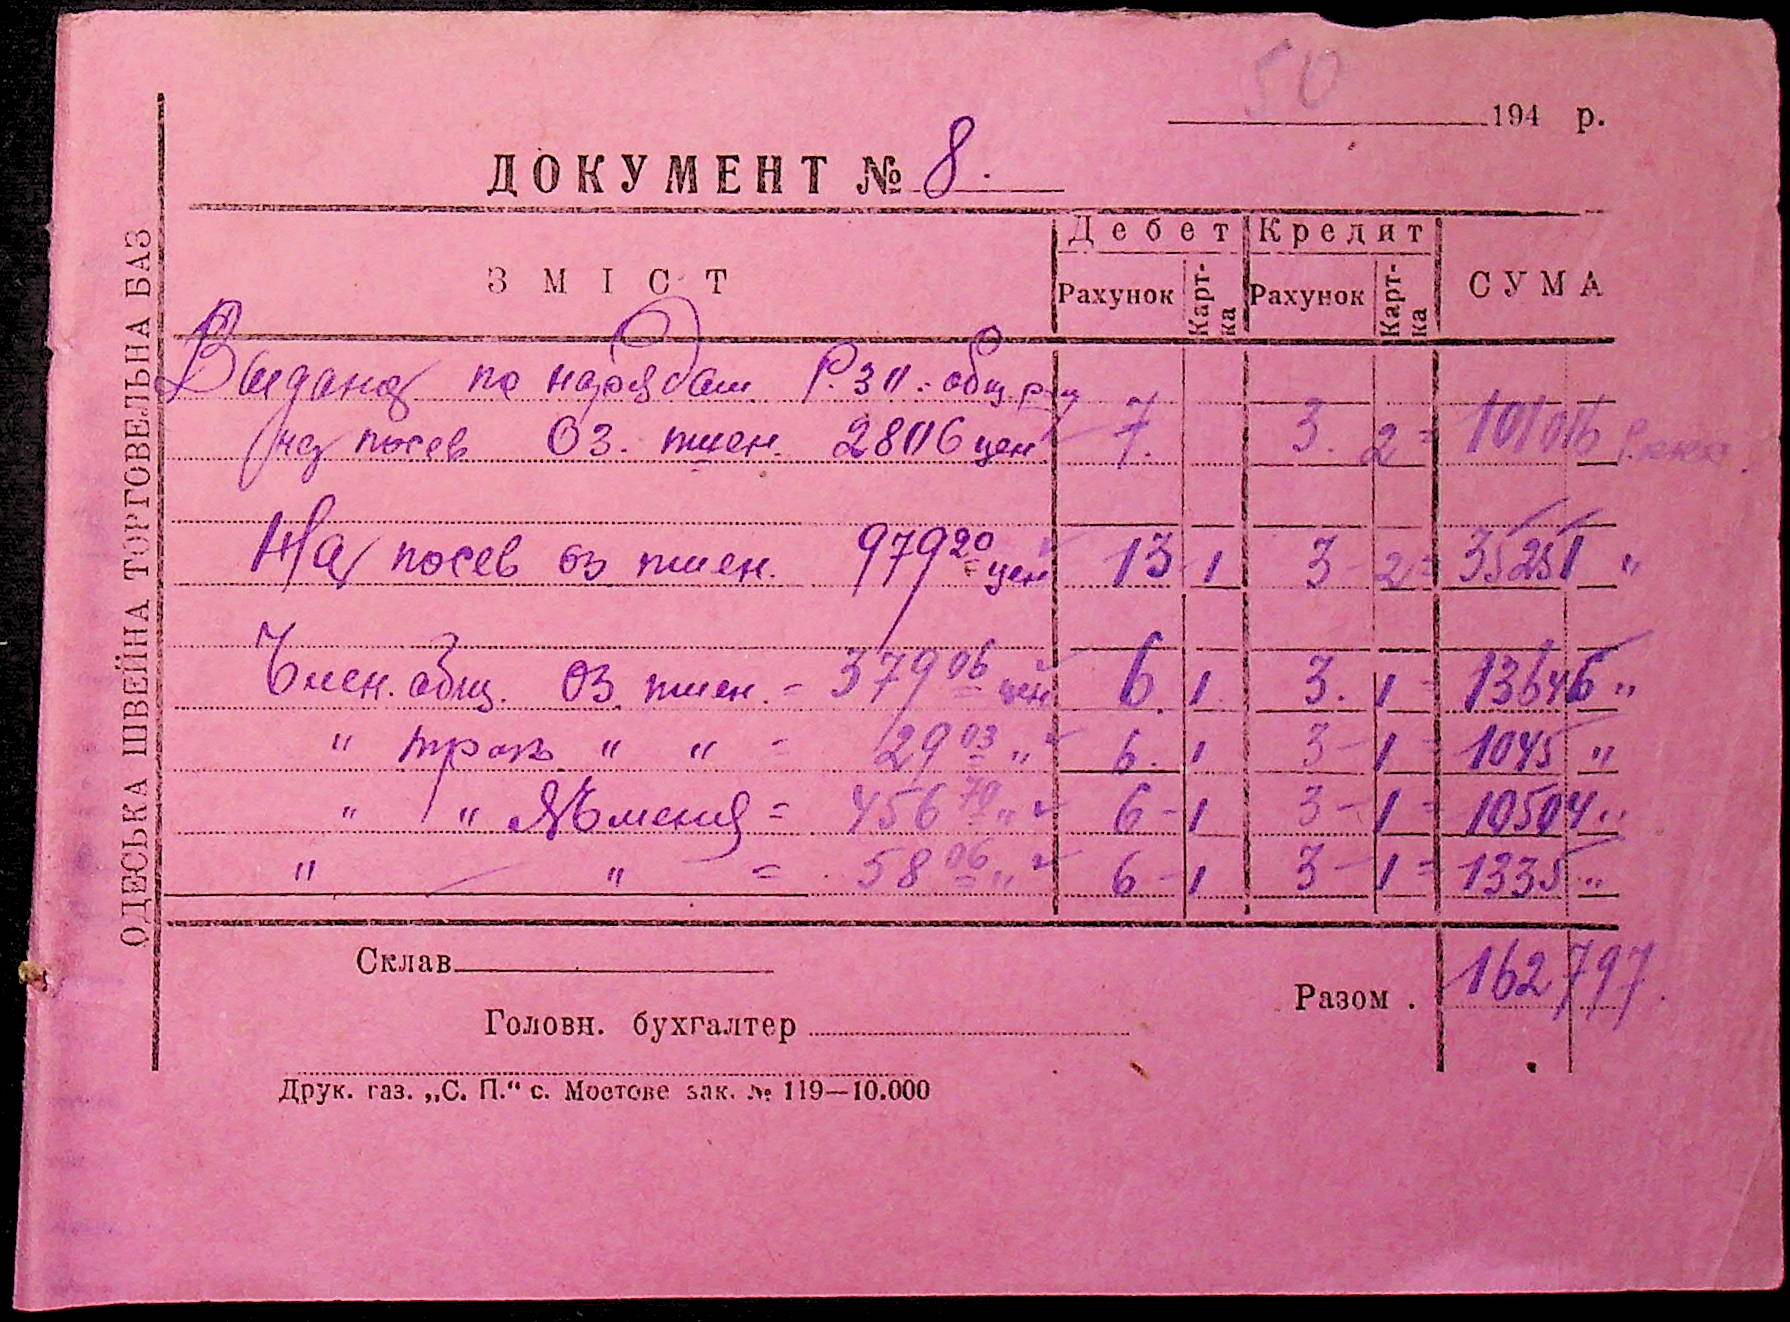 50
194 р.
ДОКУМЕНТ № 8.
ОДЕСЬКА ШВЕЙНА ТОРГОВЕЛЬНА БАЗ
ЗМІСТ Дебет Кредит СУМА
Рахунок Карт-ка Рахунок Карт-ка
Выдано по нарядам Р.ЗП. общ.
на посев оз. пшен. 2806 цен 7. 3. 2 = 101016
На посев оз пшен. 979 20 цен 13 - 1 3 - 2 = 35251 "
Член. общ. оз. пшен. - 379 06 цен 6. 1. 3. 1 = 13646 "
" " " = 29 03 " 6. 1 3 - 1 = 1045 "
" " Ячменя = 456 70 " 6 - 1 3 - 1 = 10504 "
" " = 58 06 " 6 - 1 3 - 1 = 1335 "
Склав
Разом . 162797.
Головн. бухгалтер
Друк. газ. „С. П.“ с. Мостове зак. № 119—10.000